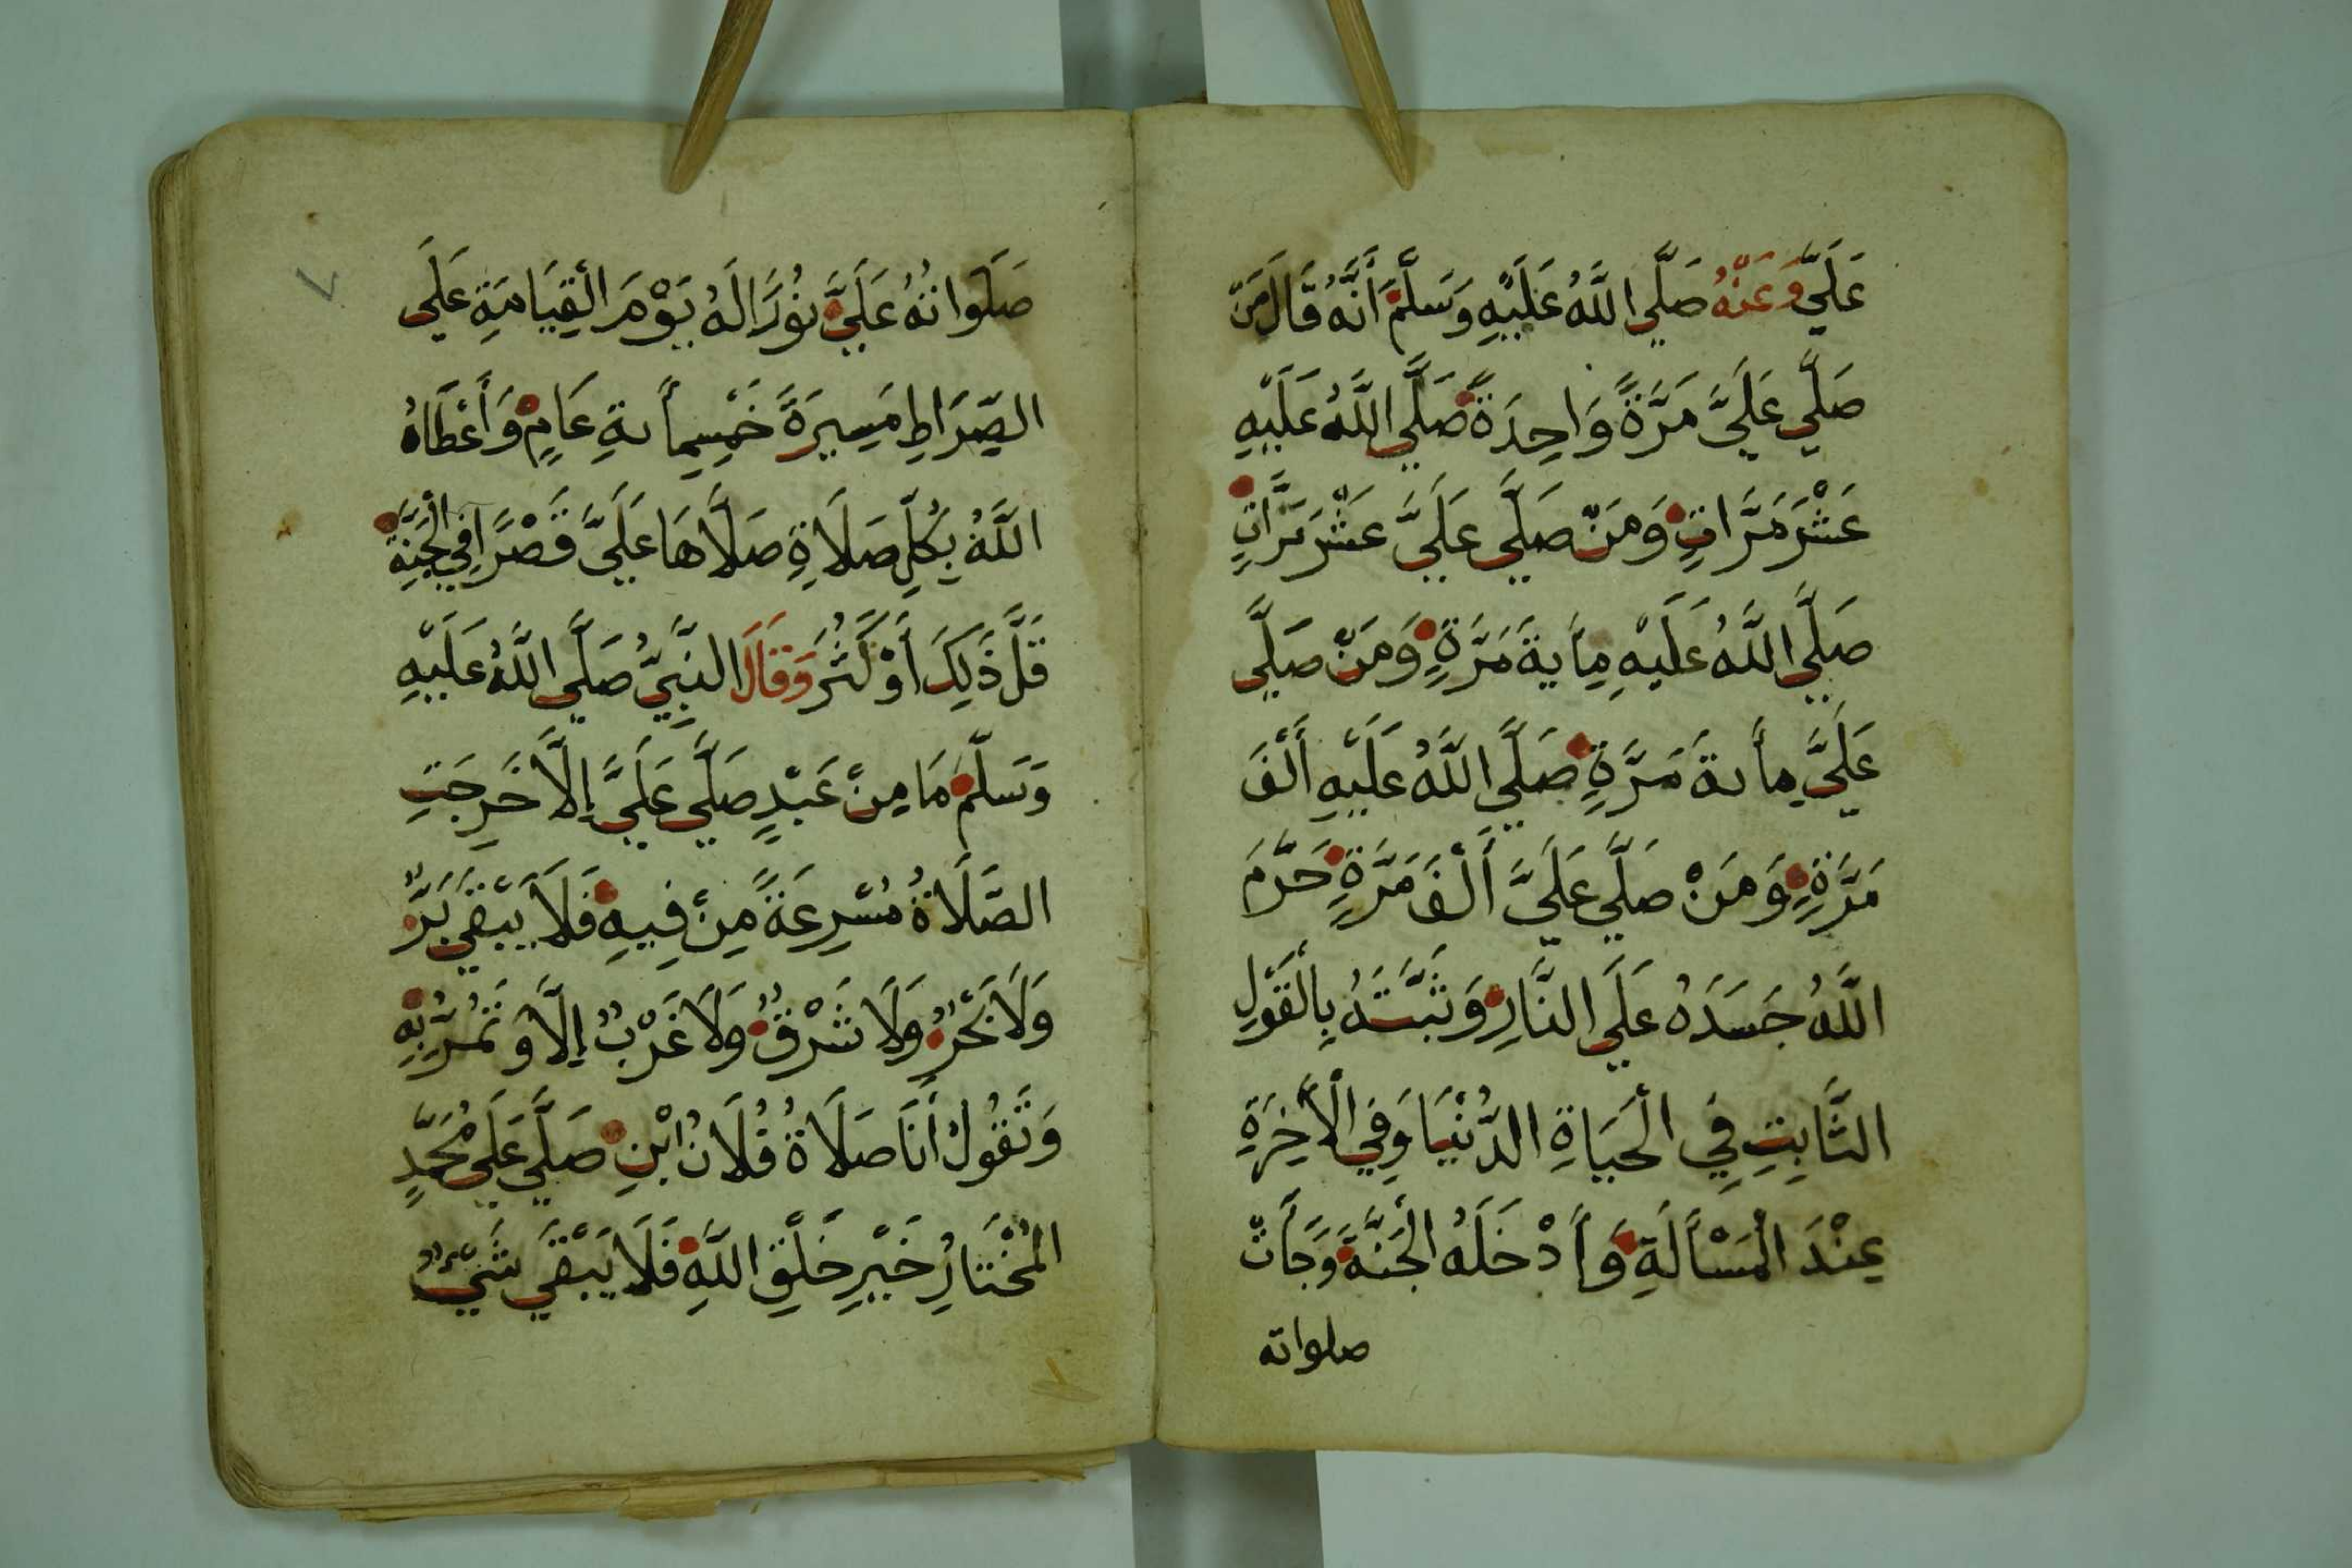 عَلَيَّ وَعَنْهُ صَلَّي اللَّهُ عَلَيْهِ وَسَلَّمَ أَنَّهُ قَالَ مَنْ
صَلَّي عَلَيَّ مَرَّةً وَاحِدَةً صَلَّي اللَّهُ عَلَيْهِ
عَشْرَ مَرَّاتٍ وَمَنْ صَلَّي عَلَيَّ عَشْرَ مَرَّاتٍ
صَلَّي اللَّهُ عَلَيْهِ مِأيةَ مَرَّةٍ وَمَنْ صَلَّي
عَلَيَّ مِأىةَ مَرَّةٍ صَلَّي اللَّهُ عَلَيْهِ أَلْفَ
مَرَّةٍ وَمَنْ صَلَّي عَلَيَّ أَلْفَ مَرَّةٍ حَرَّمَ
اللَّهُ جَسَدَهُ عَلَي النَّارِ وَثَبَّتَهُ بِالْقَوْلِ
الثَّابِتِ فِي الْحَيَاةِ الدُّنْيَا وَفِي الْأَخِرَةِ
عِنْدَ الْمَسْأَلَةِ وَأَدْخَلَهُ الْجَنَّةَ وَجَأَتْ
صلواته
صَلَوَاتُهُ عَلَيَّ نُورًا لَهُ يَوْمَ الْقِيَامَةِ عَلَي
الصِّرَاطِ مَسِيرَةَ خَمْسِمِأىةِ عَامٍ وَأَعْطَاهُ
اللَّهُ بِكُلِّ صَلَاةٍ صَلَّاهَا عَلَيَّ قَصْرًا فِي الْجَنَّةِ
قَلَّ ذَلِكَ أَوْ كَثُرَ وَقَالَ النَّبِيُّ صَلَّي اللَّهُ عَلَيْهِ
وَسَلَّمَ مَا مِنْ عَبْدٍ صَلَّي عَلَيَّ إِلَّا خَرَجَتِ
الصَّلَاةُ مُسْرِعَةً مِنْ فِيهِ فَلَا يَبْقَي بَرٌّ
وَلَا بَحْرٌ وَلَا شَرْقٌ وَلَا غَرْبٌ إِلَّا وَتَمُرُّ بِهِ
وَتَقُولُ أَنَا صَلَاةُ فُلَانُ ابْنِ صَلَّي عَلَي مُحَمَّدٍ
الْمُخْتَارِ خَيْرِ خَلْقِ اللَّهِ فَلَا يَبْقَي شَيْءٌ
٧